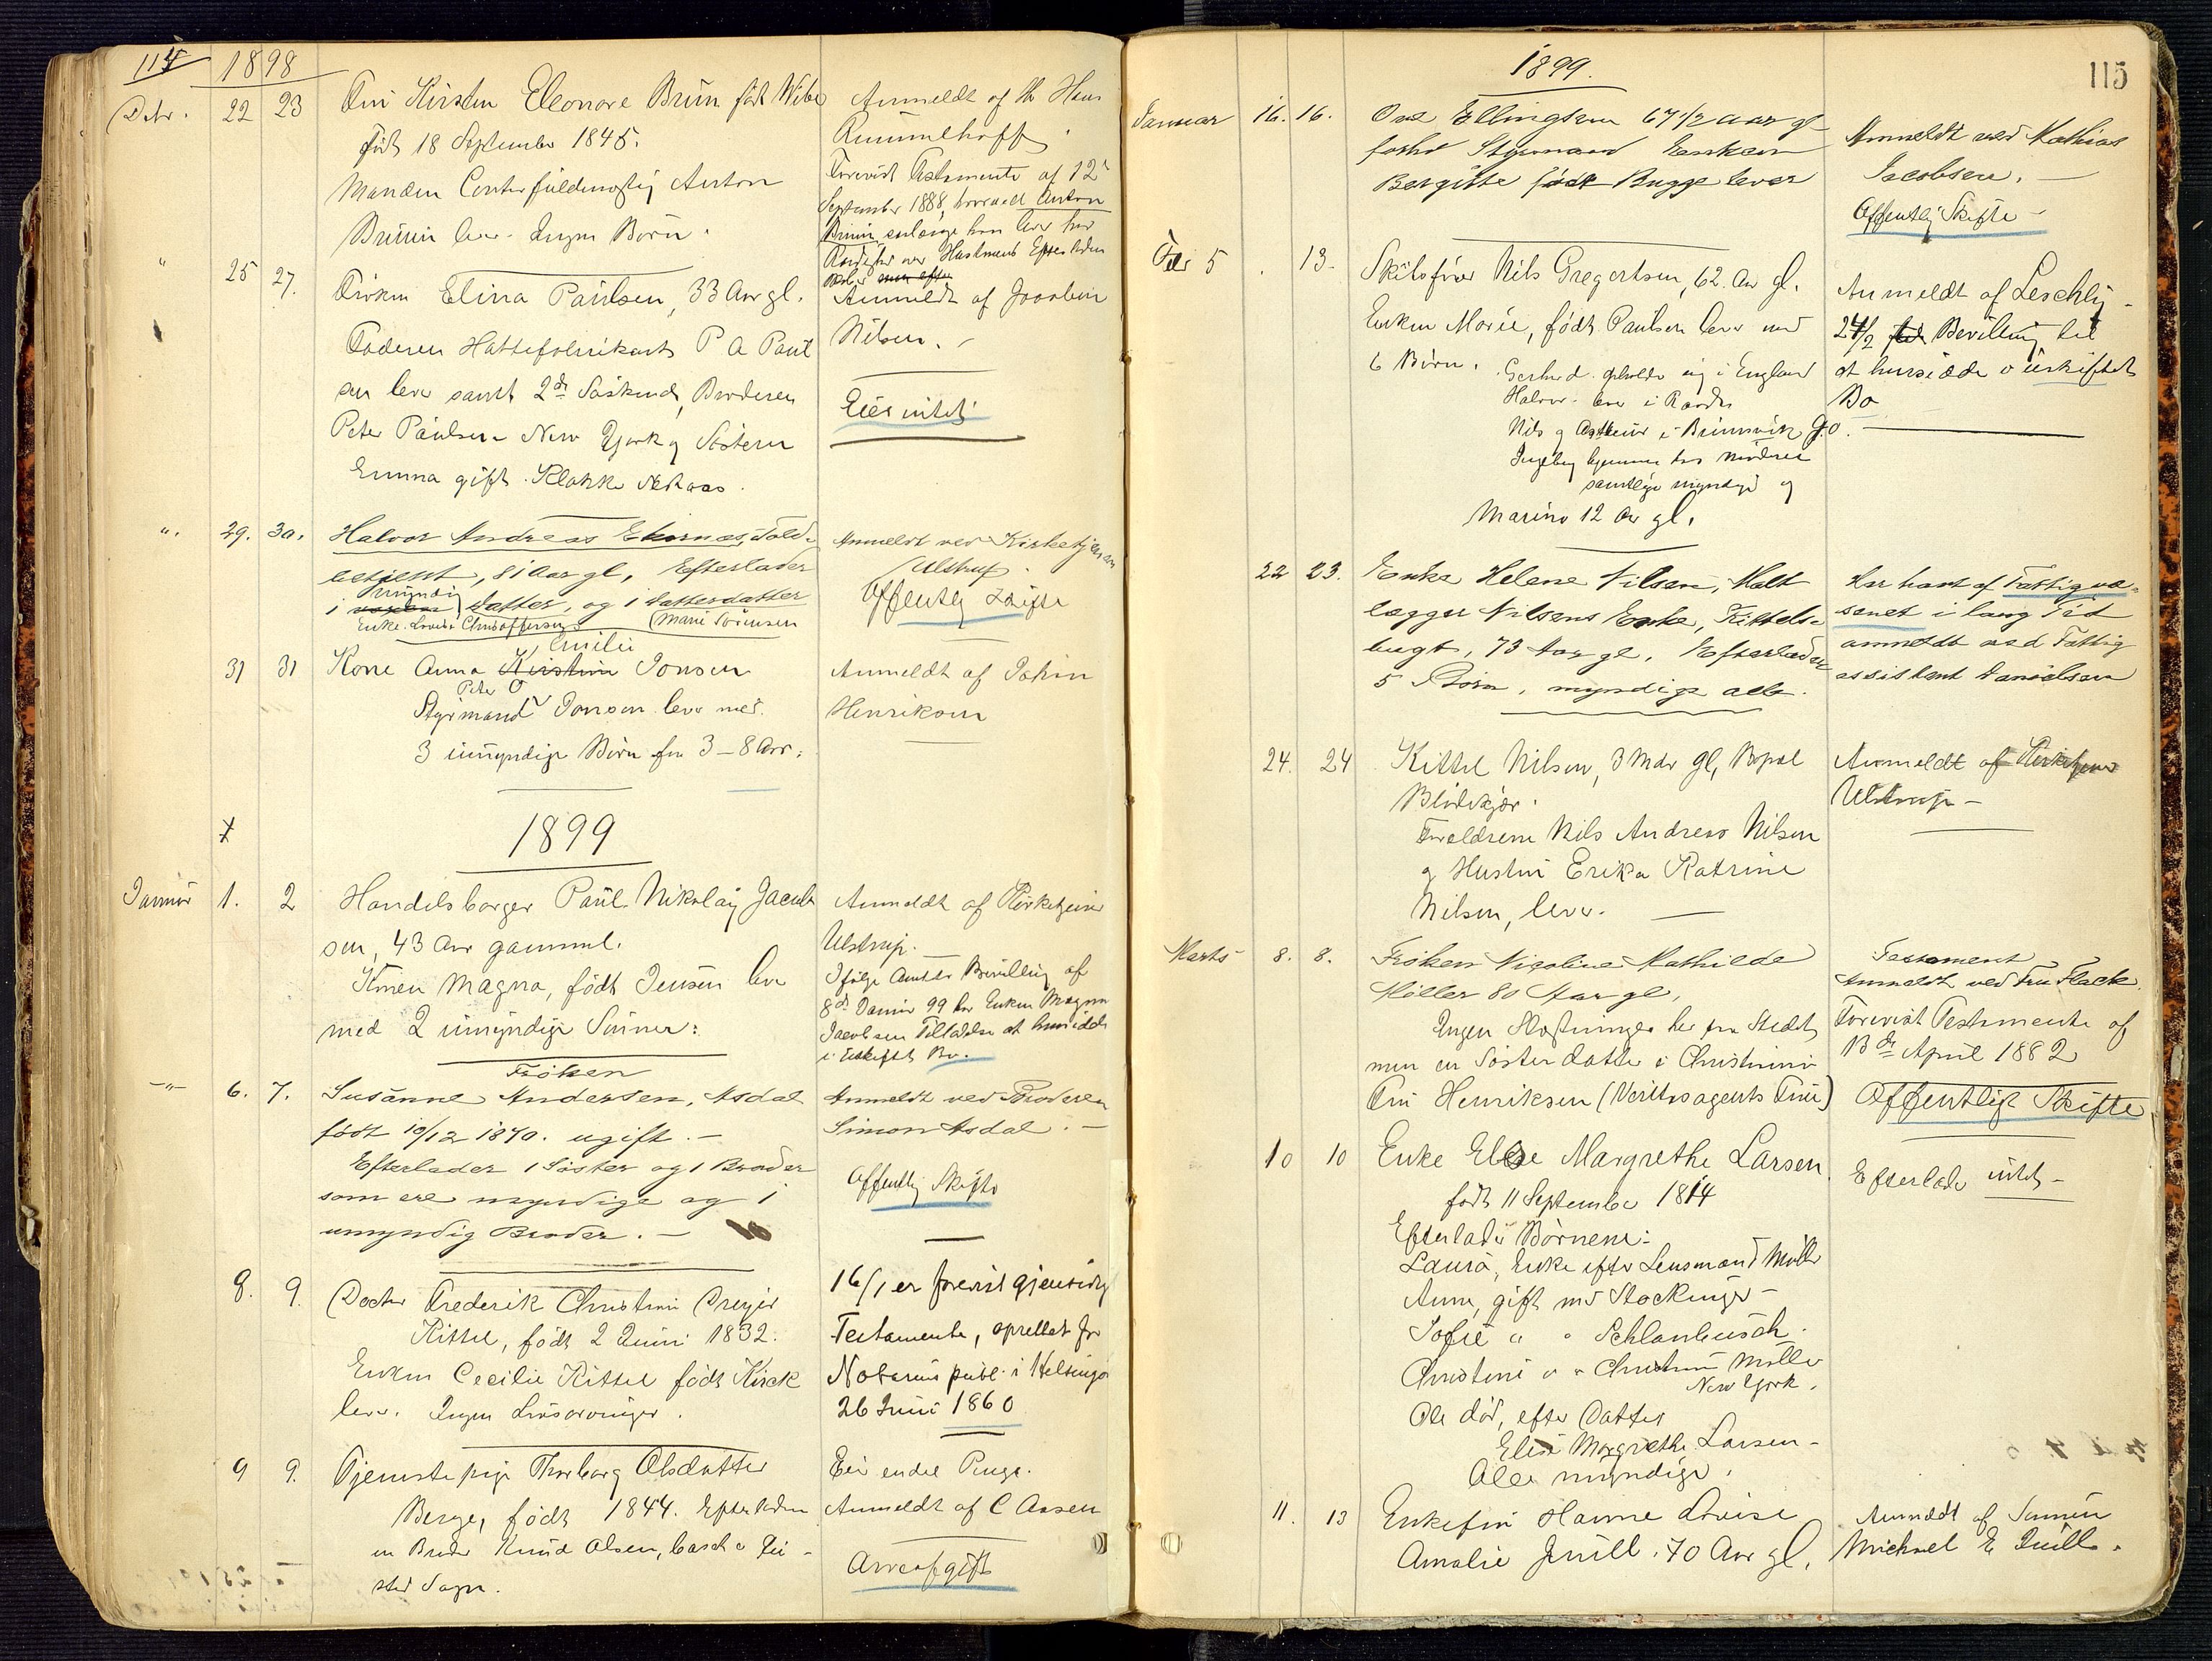 114 1898
Decbr. 22 23 Fru Kirsten Eleonore Brun født Wibe
født 18 September 1845.
Manden Contorfuldmægtig Anton
Bruun lever. Ingen Børn.
Anmeldt af Hr Hans
Rummelhoff.
Forevist Testamente af 12te
September 1888, hvorved Anton
Bruun, saalænge han lever har
Raadighed over Hustruens Efterladen
" 25 27. Frøken Elina Paulsen, 33 Aar gl.
Faderen Hattefabrikant P A Paul
sen lever samt 2de Søskende, Broderen
Peter Paulsen New York og Søsteren
Emma gift Klokker Næraas.
Anmeldt af Jacobin
Nilsen. -
Eier intet
". 29. 30. Halvor Andreas Ekornæs, Told-
betjent, 81 Aar gl, Efterlader
myndig
1 voxen Datter, og 1 Datterdatter
Enke Lovise Christoffersen (Marie Sörensen
Anmeldt ved Kirketjeneren
Ulstrup.
Offentlig Skifte
31 31 Emilie
Kone Anna Kirstine Jonsen
Peter O
Styrmand Jonsen lever med
3 umyndige Børn fra 3-8 Aar.
Anmeldt af Johan
Henriksen
1899
Januar 1. 2 Handelsborger Paul Nikolay Jacob
sen, 43 Aar gammel.
Konen Magna, født Jensen lever
med 2 umyndige Sønner.
Anmeldt af Kirketjener
Ulstrup.
Ifølge Amtets Bevilling af
8de Januar 99 har Enken Magna
Jacobsen Tilladelse at hensidde
i uskiftet Bo.
-"- 6. 7. Frøken
Susanne Andersen, Asdal
født 10/12 1870. ugift. -
Efterlader 1 Søster og 1 Broder
som ere myndige og 1
umyndig Broder. -
Anmeldt ved Broderen
Simon Asdal. -
Offentlig Skifte
8. 9. Doctor Frederik Christian Dreyer
Kittel, født 2 Juni 1832.
Enken Cecilie Kittel født Kirck
lever. Ingen Livsarvinger.
16/1 er forevist gjensidig
Testamente, oprettet for
Notarius publ. i Helsingør
26 Juni 1860
9 9. Tjenestepige Thorborg Olsdatter
Berge, født 1844. Efterladen
en Broder Knud Olsen, bosat i
sted Sogn.
Eier endel Penge.
Anmeldt af C Aasen
Arveafgift
1899. 115
Januar 16. 16. Ove Ellingsen 67 1/2 Aar gl
forhv Styrmand Enken
Bergitte født Bugge lever
Anmeldt ved Mathias
Jacobsen. -
Offentlig Skifte -
Febr 5. 13. Skibsfører Nils Gregertsen, 62 Aar gl.
Enken Marie, født Paulsen lever med
6 Børn. Gerhard opholder sig i England
Halvor lever i Randers
Nils og Arthur i Brunsvik Go.
Ingeborg hjemme hos Moderen
samtlige myndige og
Marino 12 Aar gl.
Anmeldt af Leschly -
24/2 Bevilling til
at hensidde i uskiftet
Bo
22 23. Enke Helene Nilsen, Malt
lægger Nilsens Enke, Kittels-
bugt, 73 Aar gl. Efterlader
5 Börn, myndige alle.
Har havt af Fattigvæ-
senet i lang Tid
anmeldt ved Fattig
assistent Danielsen
24. 24 Kittel Nilsen, 3 Mdr gl, Bopæl
Blødekjær.
Forældrene Nils Andreas Nilsen
og Hustru Erika Katrine
Nilsen, lever. -
Anmeldt af Kirketjener
Ulstrup -
Marts 8. 8. Frøken Nicoline Mathilde
Møller 80 Aar gl,
Ingen Slægtninger her paa Stedet,
men en Søsterdatter i Christiania
Fru Henriksen (Veritasagents Frue)
Testament
Anmeldt ved Fru Flack.
Forevist Testamente af
13de April 1882
Offentligt Skifte
10 10 Enke Else Margrethe Larsen
født 11 September 1814
Efterlader Børnene:
Laura, Enke efter Lensmand Møller
Anna, gift med Stockinger -
Sofie " " Schlanbusch.
Christine " " Christian Møller
New York.
Ole død, efter Datter
Elise Margrethe Larsen -
Alle myndige.
Efterlader intet -
11. 13 Enkefru Hanne Lovise
Amalie Juell. 70 Aar gl.
Anmeldt af Sønnen
Michael E Juell.